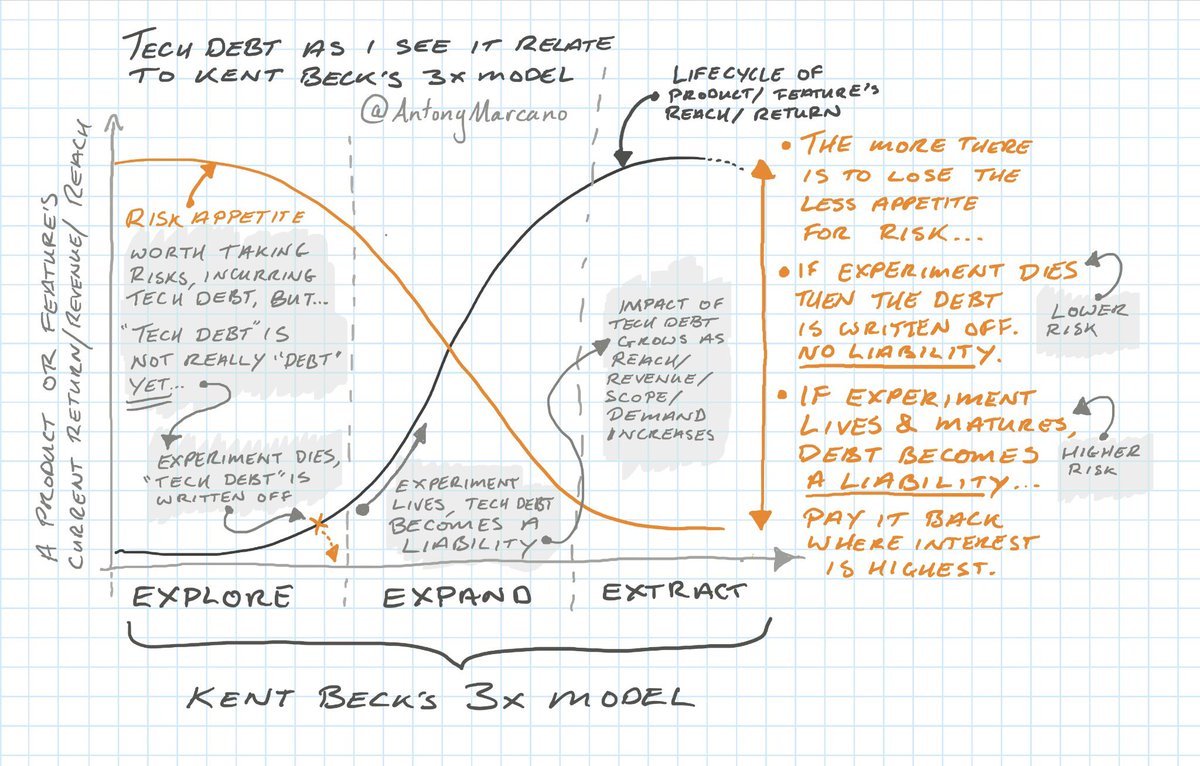 TECH DEBT AS I SEE IT RELATE
TO KENT BECK'S 3X MODEL
@AntonyMarcano
LIFECYCLE OF
PRODUCT/FEATURE'S
REACH/RETURN
A PRODUCT OR FEATURE'S
CURRENT RETURN/REVENUE/REACH
RISK APPETITE
WORTH TAKING
RISKS, INCURRING
TECH DEBT, BUT...
"TECH DEBT" IS
NOT REALLY "DEBT"
YET...
EXPERIMENT DIES,
"TECH DEBT" IS
WRITTEN OFF
EXPERIMENT
LIVES, TECH DEBT
BECOMES A
LIABILITY
IMPACT OF
TECH DEBT
GROWS AS
REACH/
REVENUE/
SCOPE/
DEMAND
INCREASES
• THE MORE THERE
IS TO LOSE THE
LESS APPETITE
FOR RISK...
• IF EXPERIMENT DIES
THEN THE DEBT
IS WRITTEN OFF.
NO LIABILITY.
LOWER
RISK
• IF EXPERIMENT
LIVES & MATURES,
DEBT BECOMES
A LIABILITY...
HIGHER
RISK
PAY IT BACK
WHERE INTEREST
IS HIGHEST.
EXPLORE
EXPAND
EXTRACT
KENT BECK'S 3X MODEL